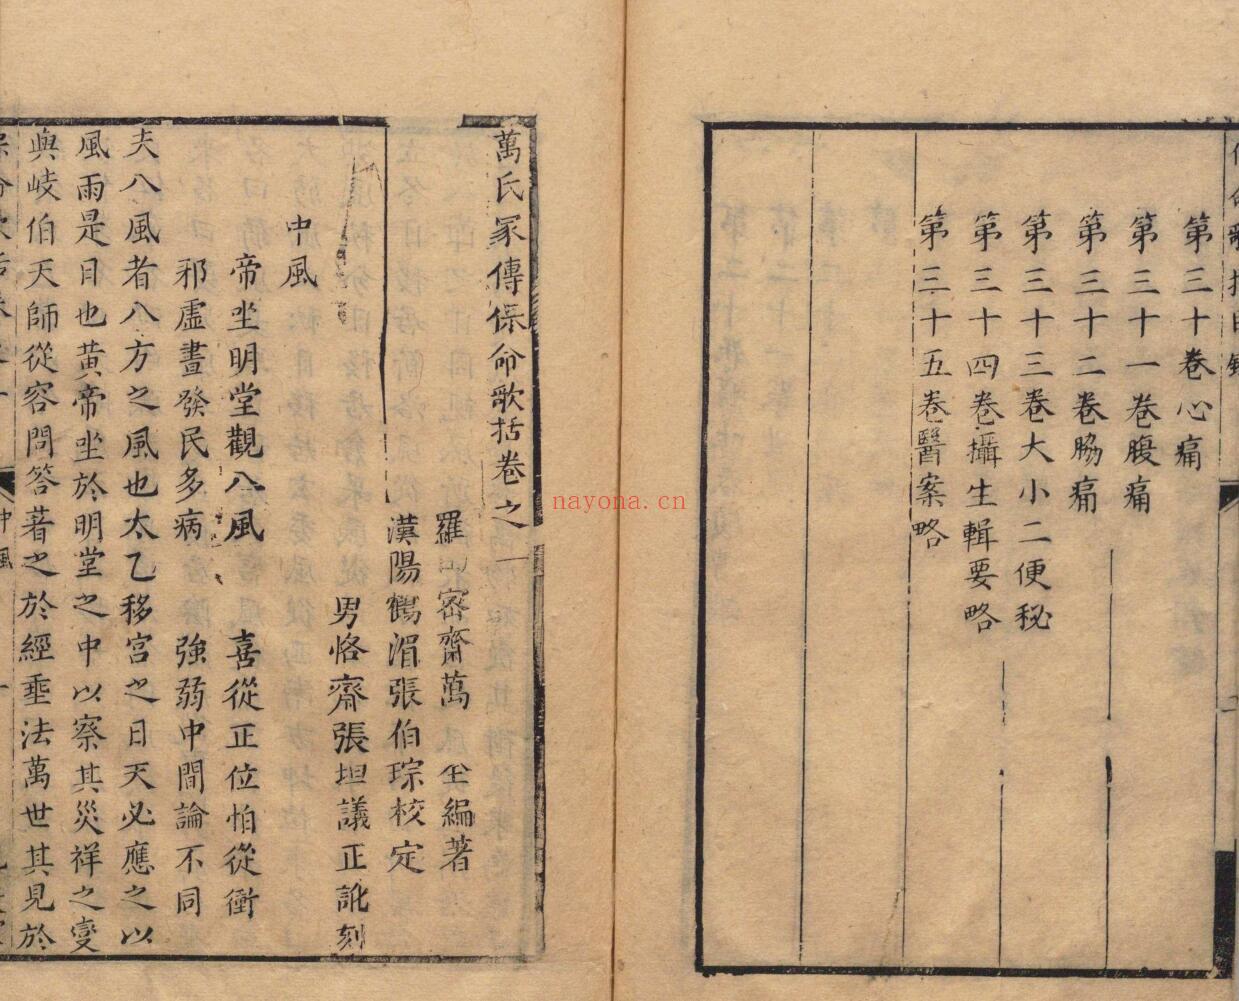 第三十卷心痛
第三十一卷腹痛
第三十二卷脇痛
第三十三卷大小二便秘
第三十四卷攝生輯要略
第三十五卷醫案略
萬氏家傳保命歌括卷之一
羅田密齋萬 全編著
漢陽鶴湄張伯琮校定
男恪齋張坦議正訛刻
中風
帝坐明堂觀八風 喜從正位怕從衝
邪虛晝發民多病 強弱中間論不同
夫八風者八方之風也太乙移宮之日天必應之以
風雨是日也黃帝坐於明堂之中以察其災祥之變
與岐伯天師從容問答著之於經垂法萬世其見於
中風
nayona.cn